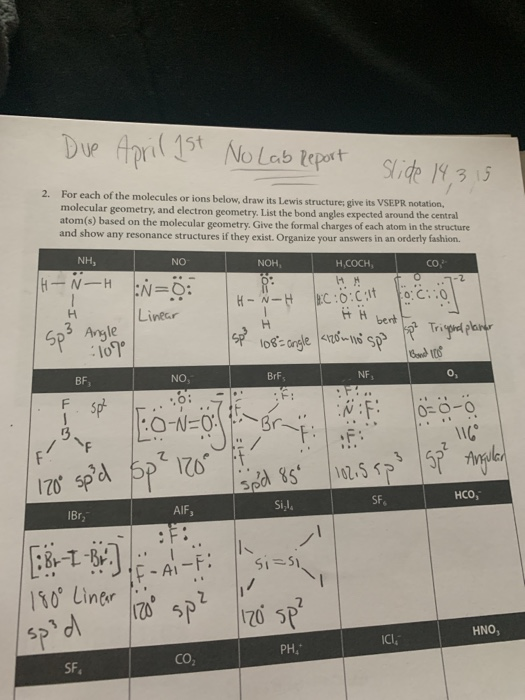 Due April 1st No Lab Report Slide 14, 3 15
2. For each of the molecules or ions below, draw its Lewis structure; give its VSEPR notation,
molecular geometry, and electron geometry. List the bond angles expected around the central
atom(s) based on the molecular geometry. Give the formal charges of each atom in the structure
and show any resonance structures if they exist. Organize your answers in an orderly fashion.
NH₃ NO⁻ NOH₃ H₃COCH₃
H-N̈-H
H
sp³ Angle
:109°
:N̈=Ö:
Linear
H-N-H
H
sp³ 108°=angle
H H
H H bent
sp³
-2
sp² Trigonal planar
BF₃ NO₃⁻ BrF₅ NF₃ O₃
F
B
F F
sp²
120° sp³d
:O:
[:Ö-N=Ö:]
sp² 120°
F:
Br-F:
sp³d 85°
:F:
:N:F:
:F:
102.5 sp³
Ö=Ö-Ö
116°
sp² Angular
IBr₂⁻ AlF₃ Si₂I₄ SF₆ HCO₃⁻
[:Br-I-Br:]
180° Linear
sp³d
:F:
:F-Al-F:
120° sp²
I I
Si=Si
I I
120° sp²
SF₄ CO₂ PH₄⁺ ICl₄⁻ HNO₃